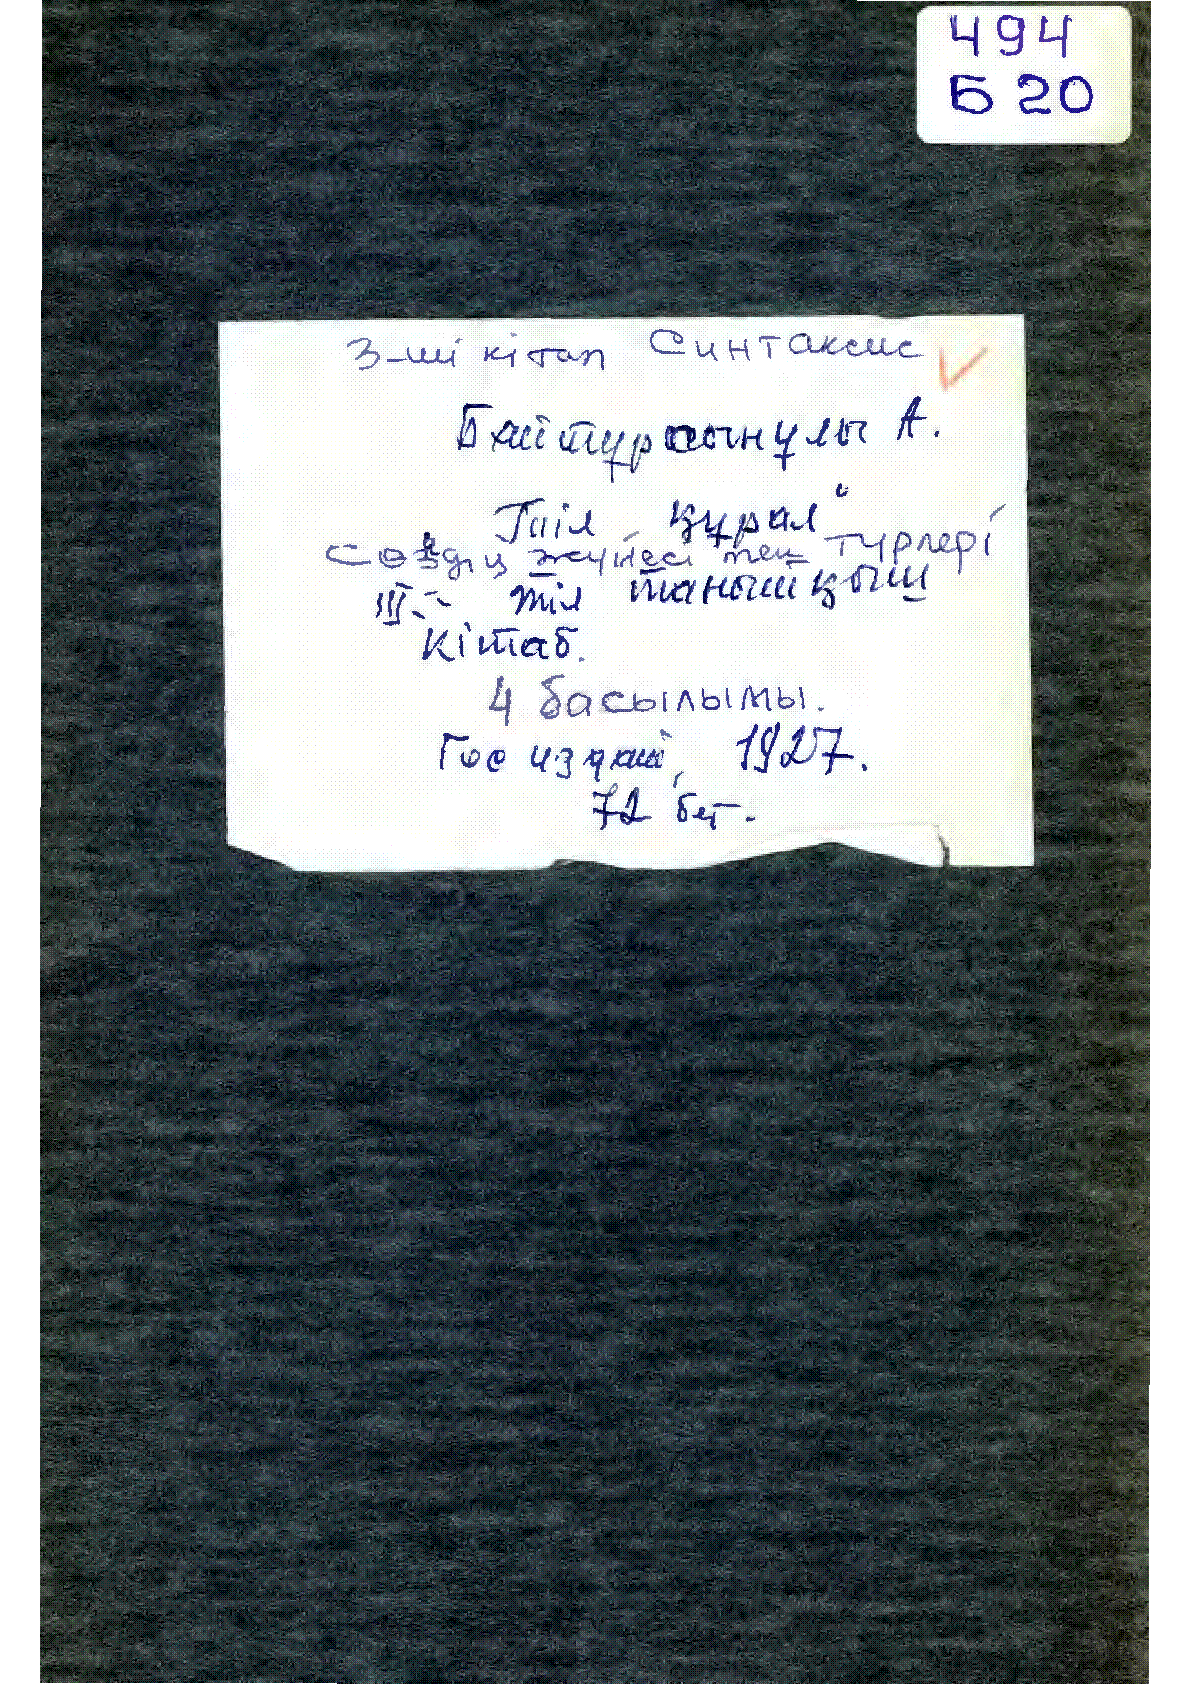 494
Б 20
3-ші кітап Синтаксис
Байтұрсынұлы А.
Тіл құрал"
Сөздің жүйесі мен түрлері
III-
тіл танытқыш
кітаб.
4 басылымы.
Гос издат, 1927.
72 бет.